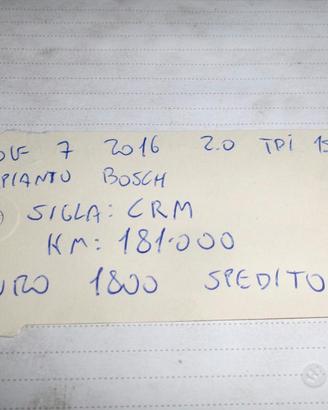 OLF 7 2016 2.0 TDI 15
PIANTO BOSCH
SIGLA: CRM
KM: 181.000
URO 1800 SPEDITO